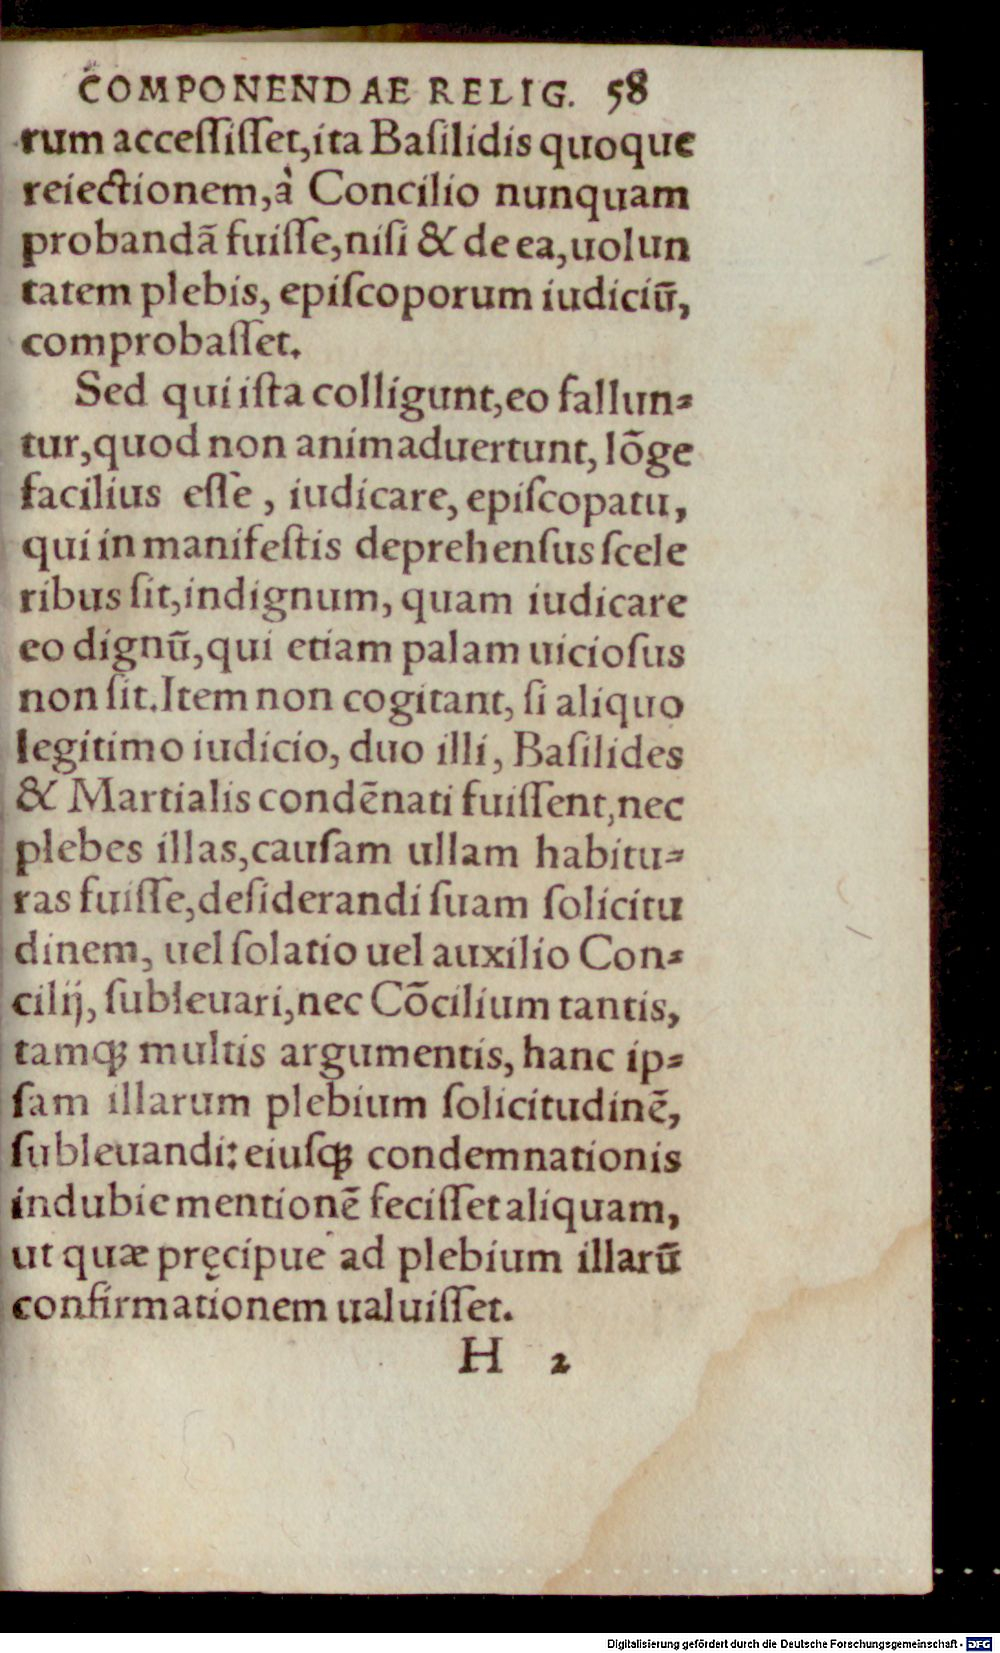 COMPONENDAE RELIG. 58
rum acceſſiſſet,ita Baſilidis quoque
reiectionem,à Concilio nunquam
probandã fuiſſe,niſi & de ea,uolun
tatem plebis, epiſcoporum iudiciũ,
comprobaſſet.
Sed qui iſta colligunt,eo fallun⸗
tur,quod non animaduertunt, lõge
facilius eſſe, iudicare, epiſcopatu,
qui in manifeſtis deprehenſus ſcele
ribus ſit,indignum, quam iudicare
eo dignũ,qui etiam palam uicioſus
non ſit. Item non cogitant, ſi aliquo
legitimo iudicio, duo illi, Baſilides
& Martialis condẽnati fuiſſent,nec
plebes illas,cauſam ullam habitu⸗
ras fuiſſe,deſiderandi ſuam ſolicitu
dinem, uel ſolatio uel auxilio Con⸗
cilij, ſubleuari,nec Cõcilium tantis,
tamq́; multis argumentis, hanc ip⸗
ſam illarum plebium ſolicitudinẽ,
ſubleuandi: eiuſq́; condemnationis
indubie mentionẽ feciſſet aliquam,
ut quæ pręcipue ad plebium illarũ
confirmationem ualuiſſet.
H 2
Digitalisierung gefördert durch die Deutsche Forschungsgemeinschaft - DFG